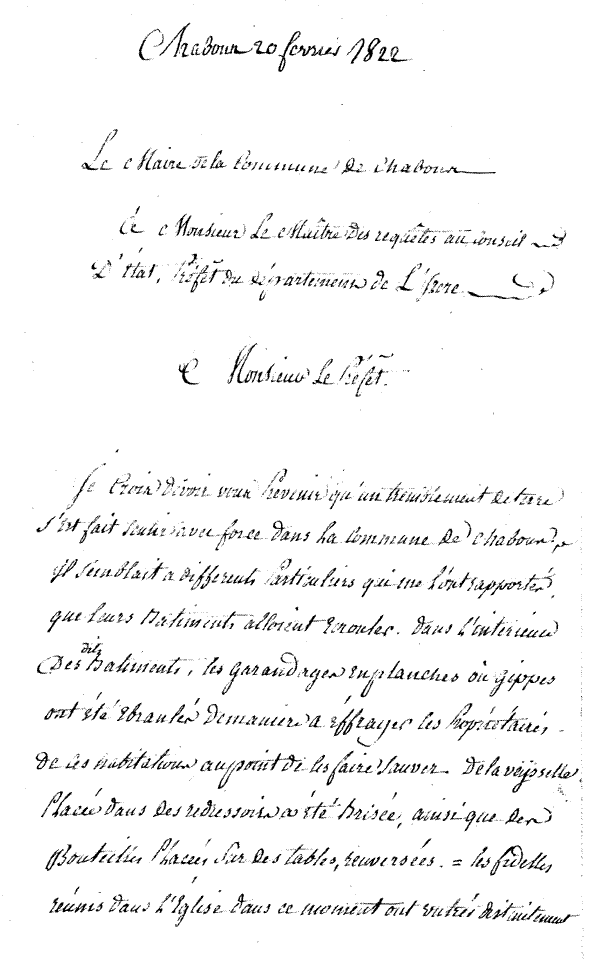 Chabons 20 fevrier 1822
Le Maire de la Commune de Chabons
A Monsieur Le Maître des requêtes au conseil
D'état, Préfet du département de L'isere
Monsieur Le Préfet.
Je Crois devoir vous Prevenir qu'un tremblement de terre
s'est fait sentir avec force dans la Commune de Chabons,
il semblait a differents Particuliers qui me l'ont rapporté,
que leurs Batiments alloient ecrouler. dans l'interieur
Des dits Batiments, les garandages en planches où gippes
ont été ebranlés de maniere a éffrayer les Propriétaires
de ces habitations au point de les faire sauver. De la veysselle
Placée dans des redressoirs a été Brisée, ainsi que des
Bouteilles Placées sur des tables, renversées. = les fidelles
réunis dans L'Eglise dans ce moment ont distinctement